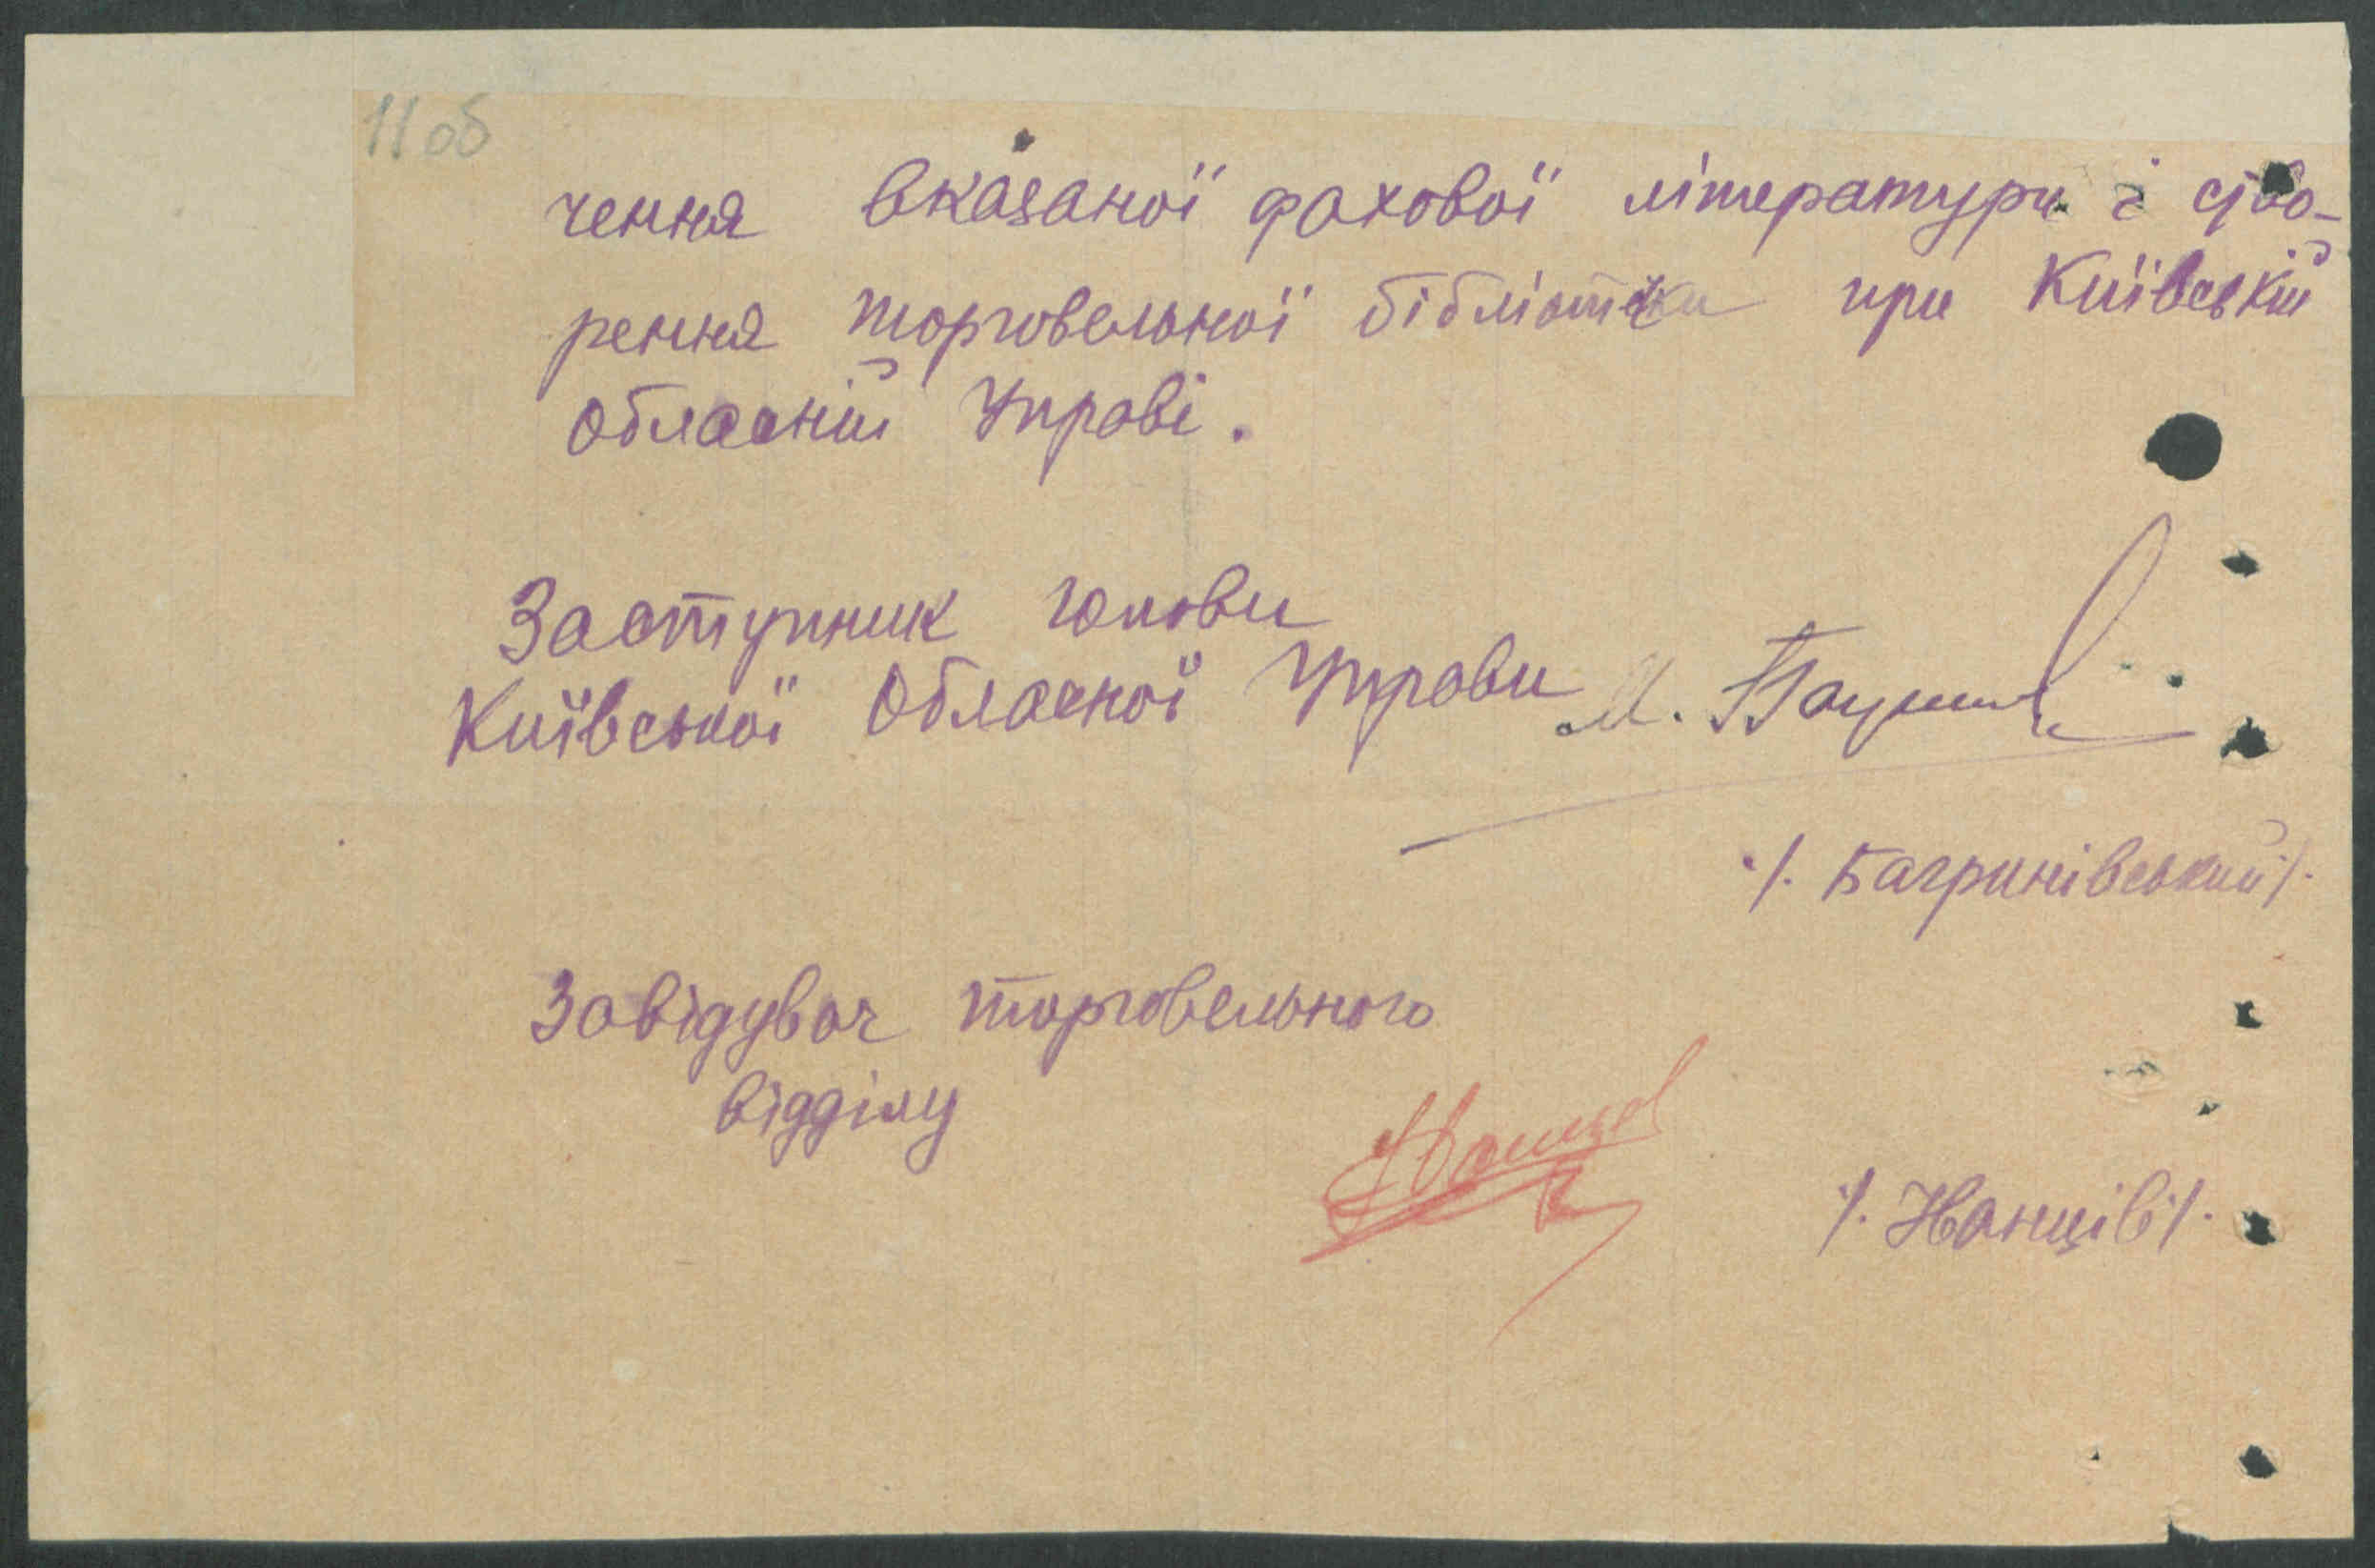 11об
чення вказаної фахової літератури і ство-
рення торговельної бібліотеки при Київській
Обласній Управі.
Заступник голови
Київської Обласної Управи М.
/. Багринівський/.
Завідувач торговельного
відділу
/. Іванців/.